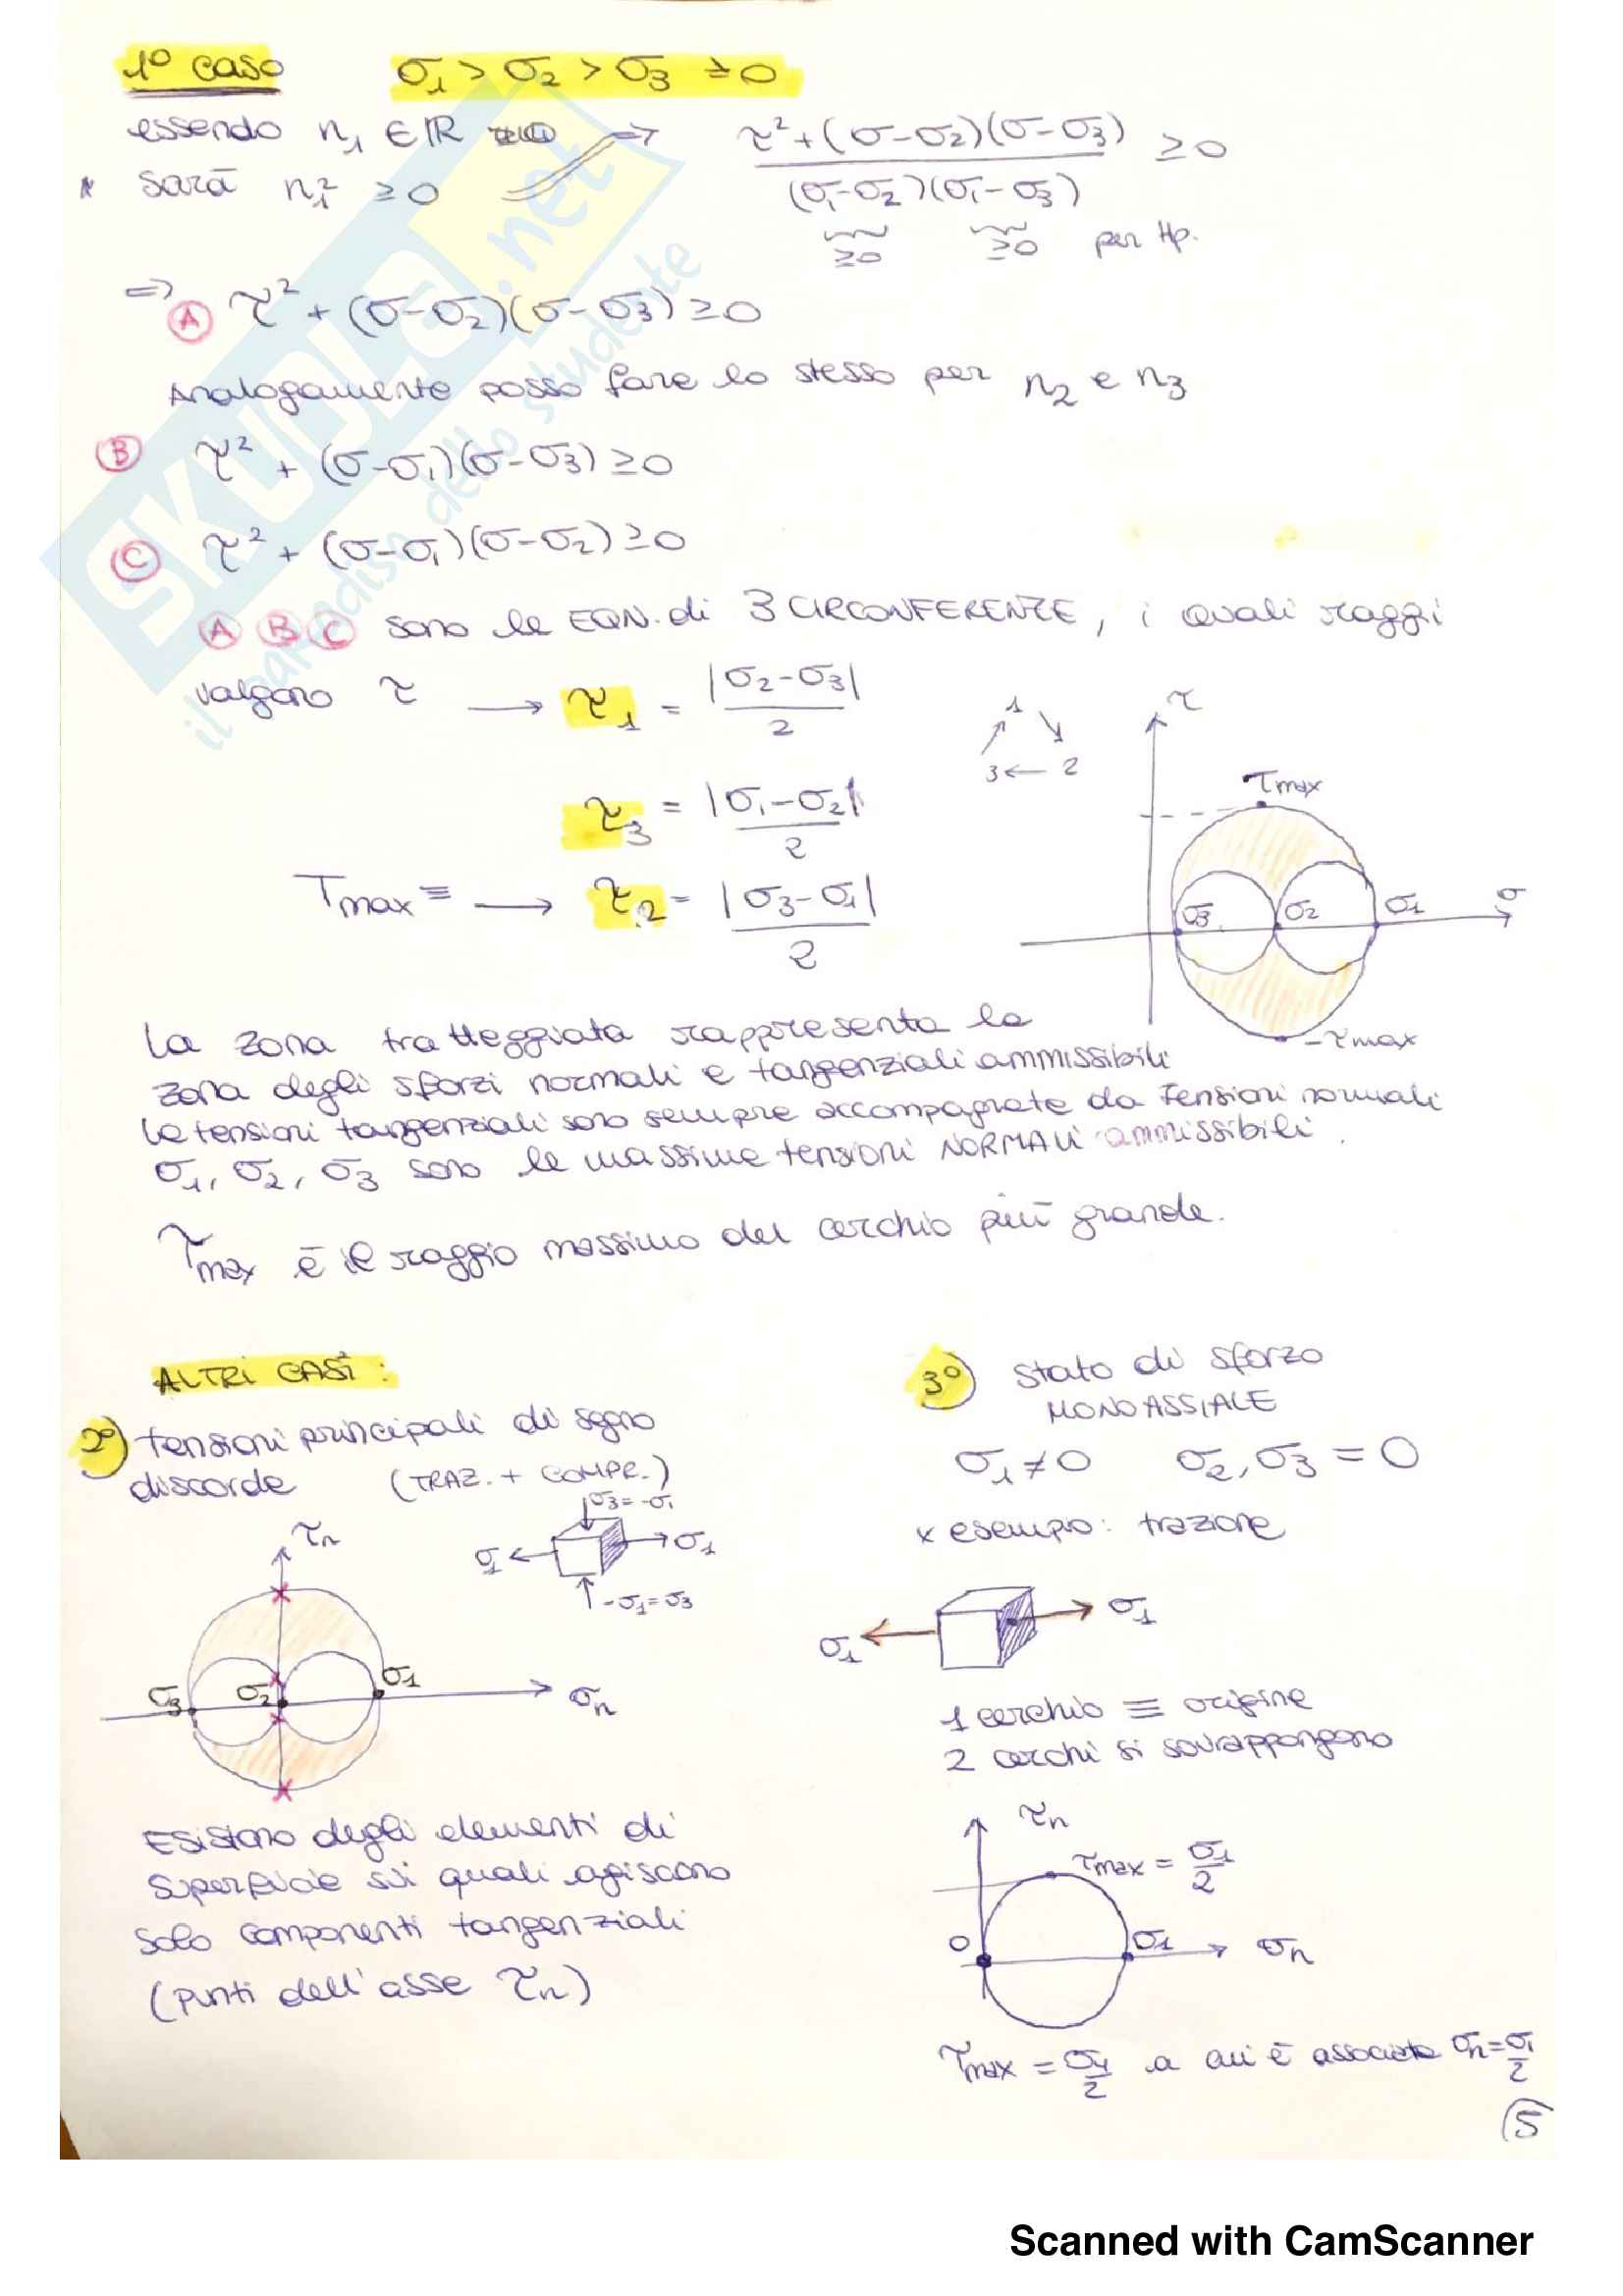 1° caso σ₁ > σ₂ > σ₃ ≥ 0
essendo n₁ ∈ ℝ ⇒ τ² + (σ-σ₂)(σ-σ₃) / (σ₁-σ₂)(σ₁-σ₃) ≥ 0
* sarà n₁² ≥ 0
≥0 ≥0 per Hp.
⇒ (A) τ² + (σ-σ₂)(σ-σ₃) ≥ 0
Analogamente posso fare lo stesso per n₂ e n₃
(B) τ² + (σ-σ₁)(σ-σ₃) ≥ 0
(C) τ² + (σ-σ₁)(σ-σ₂) ≥ 0
(A) (B) (C) sono le EQN. di 3 CIRCONFERENZE, i quali raggi
valgono τ → τ₁ = |σ₂-σ₃| / 2
τ₃ = |σ₁-σ₂| / 2
τmax ≡ → τ₂ = |σ₃-σ₁| / 2
1
3 ← 2
τ
τmax
σ₃ σ₂ σ₁ σ
-τmax
La zona tratteggiata rappresenta la
zona degli sforzi normali e tangenziali ammissibili
Le tensioni tangenziali sono sempre accompagnate da tensioni normali
σ₁, σ₂, σ₃ sono le massime tensioni NORMALI ammissibili.
τmax è il raggio massimo del cerchio più grande.
ALTRI CASI:
2°) tensioni principali di segno
discorde (TRAZ. + COMPR.)
σ₃ = -σ₁
σ₁ σ₁
-σ₁ = σ₃
τn
σ₃ σ₂ σ₁ σn
Esistono degli elementi di
superficie sui quali agiscono
solo componenti tangenziali
(punti dell'asse τn)
3°) Stato di sforzo
MONOASSIALE
σ₁ ≠ 0 σ₂, σ₃ = 0
x esempio: trazione
σ₁ σ₁
1 cerchio ≡ origine
2 cerchi si sovrappongono
τn
τmax = σ₁/2
0 σ₁ σn
τmax = σ₁/2 a cui è associata σn = σ₁/2
5
SKUOLA.net
il paradiso dello studente
Scanned with CamScanner